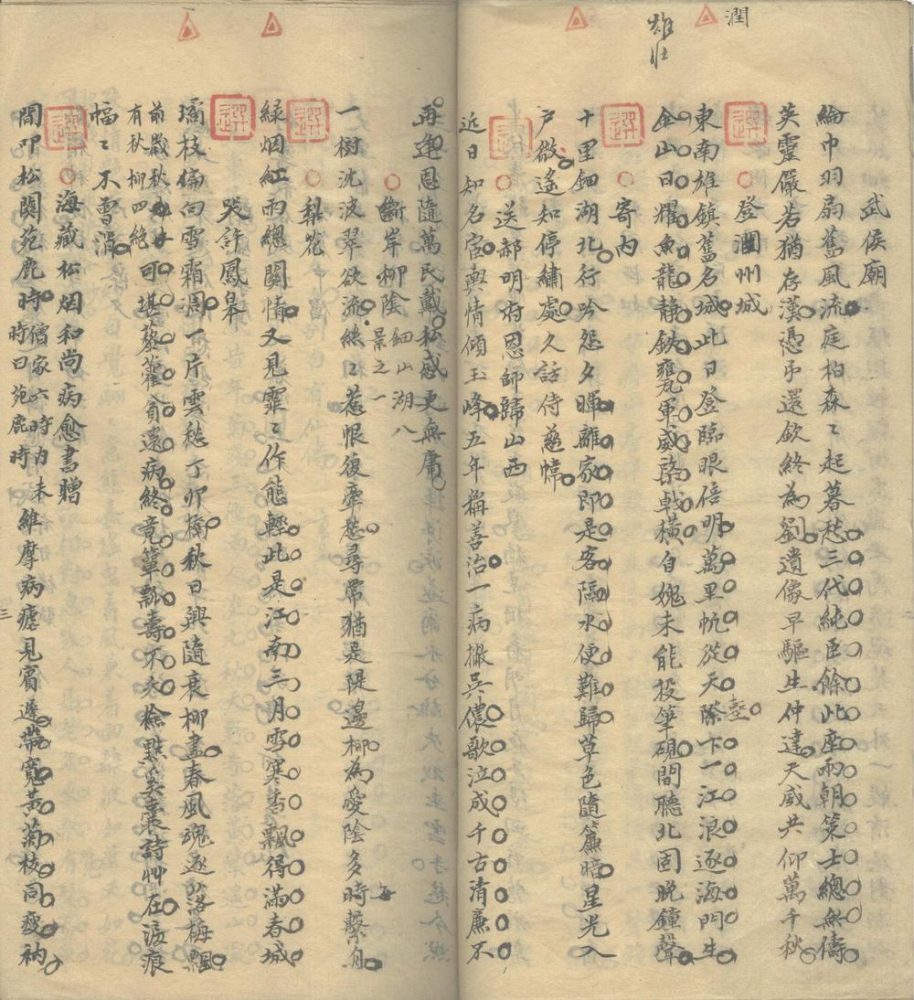 潤
雄壯
武侯廟
綸巾羽扇舊風流庭柏森〻起暮愁三代純臣餘此座兩朝策士總無儔
英靈儼若猶存漢憑弔還欽終為劉遺像早驅生仲達天威共仰萬千秋
選
登潤州城
東南雄鎮舊名城此日登臨眼倍明萬里帆從天際下一江浪逐海門生
金山日耀魚龍靜鉄甕軍威戟橫自媿未能投筆硯間聽北固晚鐘聲
選
寄內
十里鈿湖北行吟怨夕暉離家即是客隔水便難歸草色隨簾暗星光入
戶微遙知停繡處久話侍慈幃
選
送郝明府恩師歸山西
近日知名宦輿情傾玉峰五年稱善治一病撤吳儂歌泣成千古清廉不
再逢恩隨萬民戴私感更無庸
斷岸柳陰 鈿山湖八景之一
一樹沈波翠欲流絲〻相惹恨復牽愁尋常猶是隄邊柳為愛陰多時繫舟
選
梨花
綠烟紅雨總關情又見霏〻作態輕此是江南三月雪寒香飄得滿春城
選
哭許鳳皋
瑤枝偏向雪霜凋一片雲愁丁卯橋秋日興隨衰柳盡春風魂逐落梅飄
前歲秋有秋柳四絕
可堪藜藿貧還病終竟簞瓢壽不夭檢點奚囊詩艸在淚痕
幅〻不雪消
選
海藏松烟和尚病愈書贈
間叩松關苑鹿時 僧家六時力未時曰苑鹿時 維摩病瘧見賓遲帶寬黃菊枝同瘦衲
三